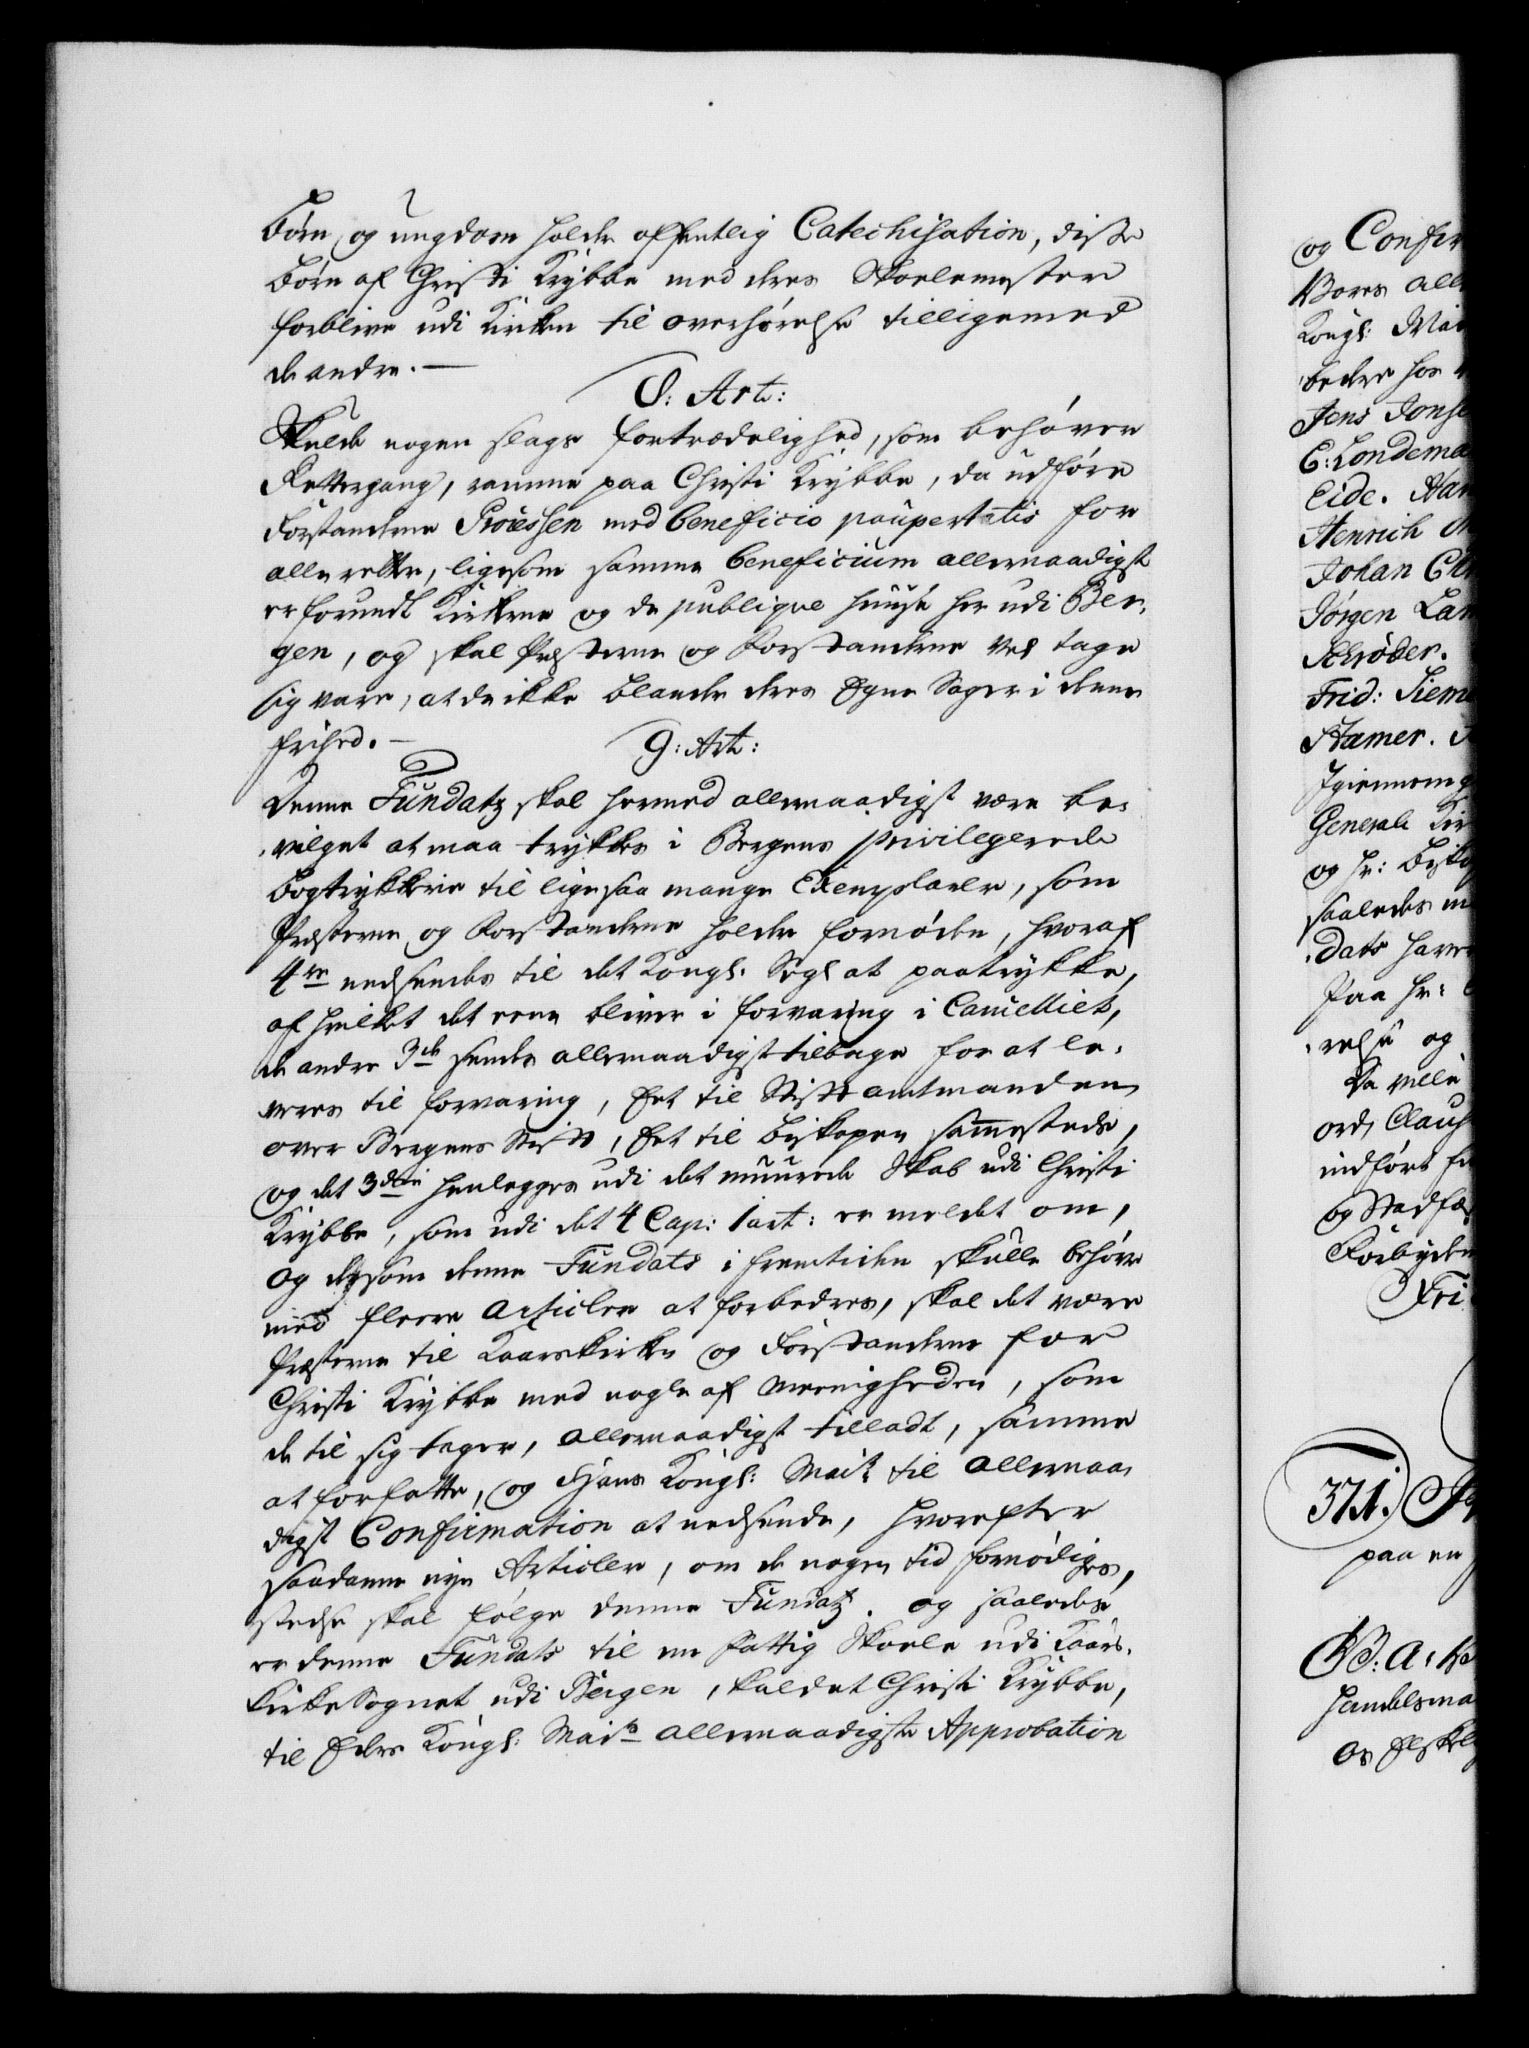 Børn og ungdom holder offentlig Catechisation, disse
Børn af Christi Krybbe med deres Skolemester
forblive udi Kirken til overhørelse tilligemed
de andre. —
8: Art:
Skulde nogen slags fortrædelighed, som behøver
Rettergang, ramme paa Christi Krybbe, da udføre
Forstanderne Processen med beneficio paupertatis for
alle retter, ligesom samme beneficium allernaadigst
er forundt Kirkerne og de publiqve Huuse her udi Ber,
gen, og skal Præsterne og Forstanderne vel tage
sig vare, at de ikke blande deres Egne Sager i denne
frihed. —
9: Art:
Denne Fundatz skal hermed allernaadigst være be,
vilget at maa trykkes i Bergens privilegerede
bogtrykkerie til ligesaa mange Exemplarer, som
Præsterne og Forstanderne holder fornøden, hvoraf
4re nedsendes til det Kongl: Segl at paatrykke,
af hvilket det eene bliver i forvaring i Cancelliet,
de andre 3de sendes allernaadigst tilbage for at le,
veres til forvaring, Eet til Stiftamtmanden
over Bergens Stift, Eet til biskopen sammesteds,
og det 3die henlegges udi det muurede Skab udi Christi
Krybbe, som udi det 4 Cap: 1 art: er meldet om,
og dersom denne Fundats i fremtiden skulle behøve
med fleere Articler at forbedres, skal det være
Præsterne til Kaarskirke og Forstanderne for
Christi Krybbe med nogle af Meenigheden, som
de til sig tager, allernaadigst tilladt, samme
at forfatte, og Hans Kongl: Maits til allernaa,
digst Confirmation at nedsende, hvorefter
saadanne nye Articler, om de nogen tid fornødiges,
stedse skal følge denne Fundatz. og saaledes
er denne Fundats til en Fattig Skoele udi Kaars,
kirke Sognet udi Bergen, kaldet Christi Krybbe,
til Eders Kongl: Maits allernaadigste Approbation
og Confir
Vores all
Kongl: Mai
beder hos
Jens Jonse
E: Londema
Eide. Han
Henrich
Johan Ch
Jörgen Lam
Schrøder.
Frid: Siem
Hamer.
Igiennemg
Generale Kir
og Hr: Bisko
saaledes
dats have
Paa Hr:
relse og
Da ville
ord, Claus
indført
og Stadfæ
Forbyden
371.
paa en
handelsma
Os Elskel